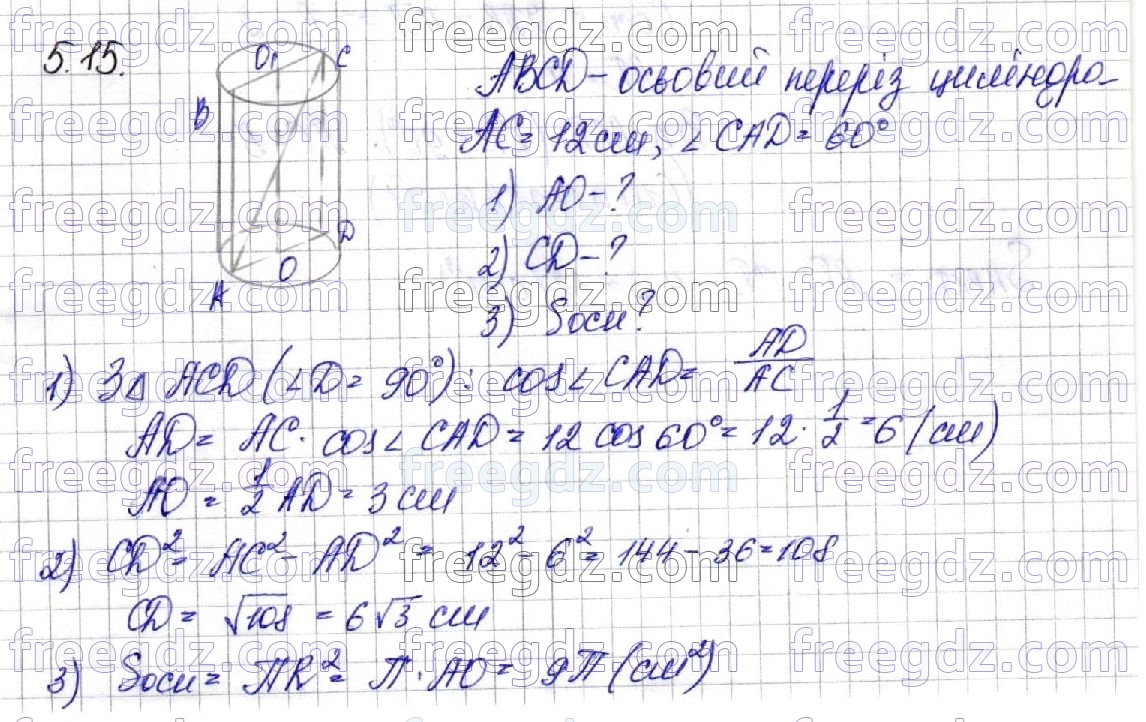 5.15.
O₁ C
B
D
O
A
ABCD - осьовий переріз циліндра
AC = 12 см, ∠ CAD = 60°
1) AO - ?
2) CD - ?
3) Sосн ?
1) З Δ ACD (∠D = 90°): cos∠CAD = AD/AC
AD = AC · cos∠CAD = 12 cos 60° = 12 · 1/2 = 6 (см)
AO = 1/2 AD = 3 см
2) CD² = AC² - AD² = 12² - 6² = 144 - 36 = 108
CD = √108 = 6√3 см
3) Sосн = πR² = π · AO = 9π (см²)
freegdz.com